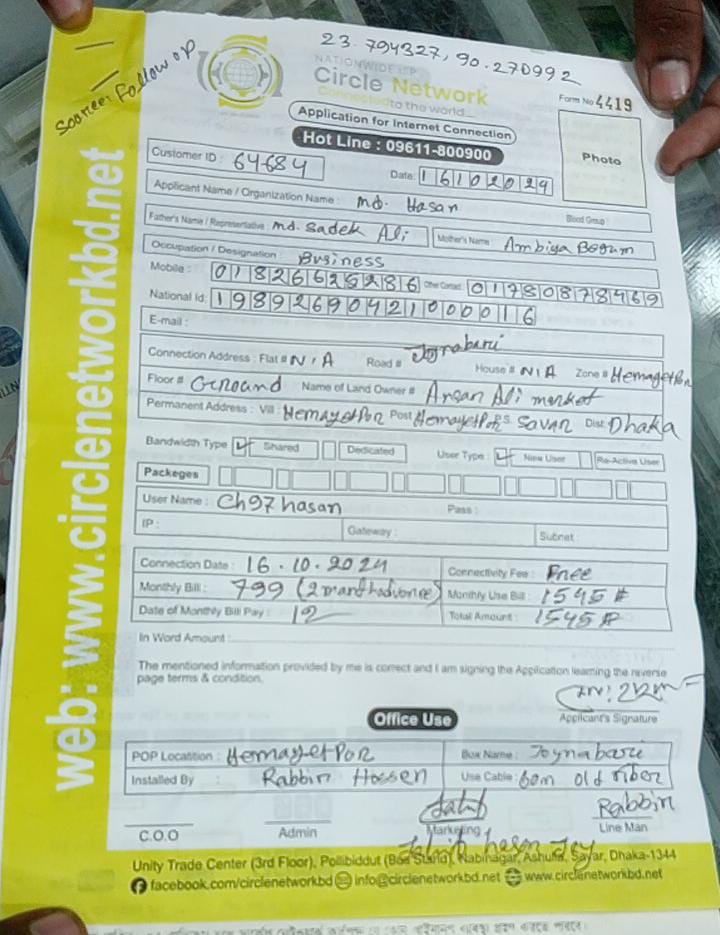 23.794327, 90.270992
Sources Follow OP
NATIONWIDE ISP
Circle Network
Connected to the world...
Form No 4419
Application for Internet Connection
Hot Line : 09611-800900
Photo
Customer ID : 64684
Date: 16102024
Applicant Name / Organization Name : Md. Hasan
Blood Group :
Father's Name / Representative : Md. Sadek Ali
Mother's Name : Ambiya Begum
Occupation / Designation : Business
Mobile : 01826625286 Other Contact : 01780878469
National Id: 19892690421000016
E-mail :
Connection Address : Flat # N/A Road # Joynabari House # N/A Zone # HemayetPor
Floor # Ground Name of Land Owner # Ansan Ali market
Permanent Address : Vill HemayetPor Post HemayetPor P.S. Savar Dist Dhaka
Bandwidth Type : Shared Dedicated User Type : New User Re-Active User
Packeges
User Name : Ch97hasan Pass :
IP : Gateway : Subnet :
Connection Date : 16.10.2024 Connectivity Fee : Free
Monthly Bill : 799 (2 manth advance) Monthly Use Bill : 1545 #
Date of Monthly Bill Pay : 12 Total Amount : 1545 #
In Word Amount :
The mentioned information provided by me is correct and I am signing the Application learning the reverse
page terms & condition.
Applicant's Signature
Office Use
POP Locatition : HemayetPor Box Name : Joynabari
Installed By : Rabbin Hossen Use Cable : 60m old fiber
Rabbin
C.O.O Admin Marketing Line Man
Unity Trade Center (3rd Floor), Pollibiddut (Bas Stand), Nabinagar, Ashulia, Savar, Dhaka-1344
facebook.com/circlenetworkbd info@circlenetworkbd.net www.circlenetworkbd.net
web: www.circlenetworkbd.net